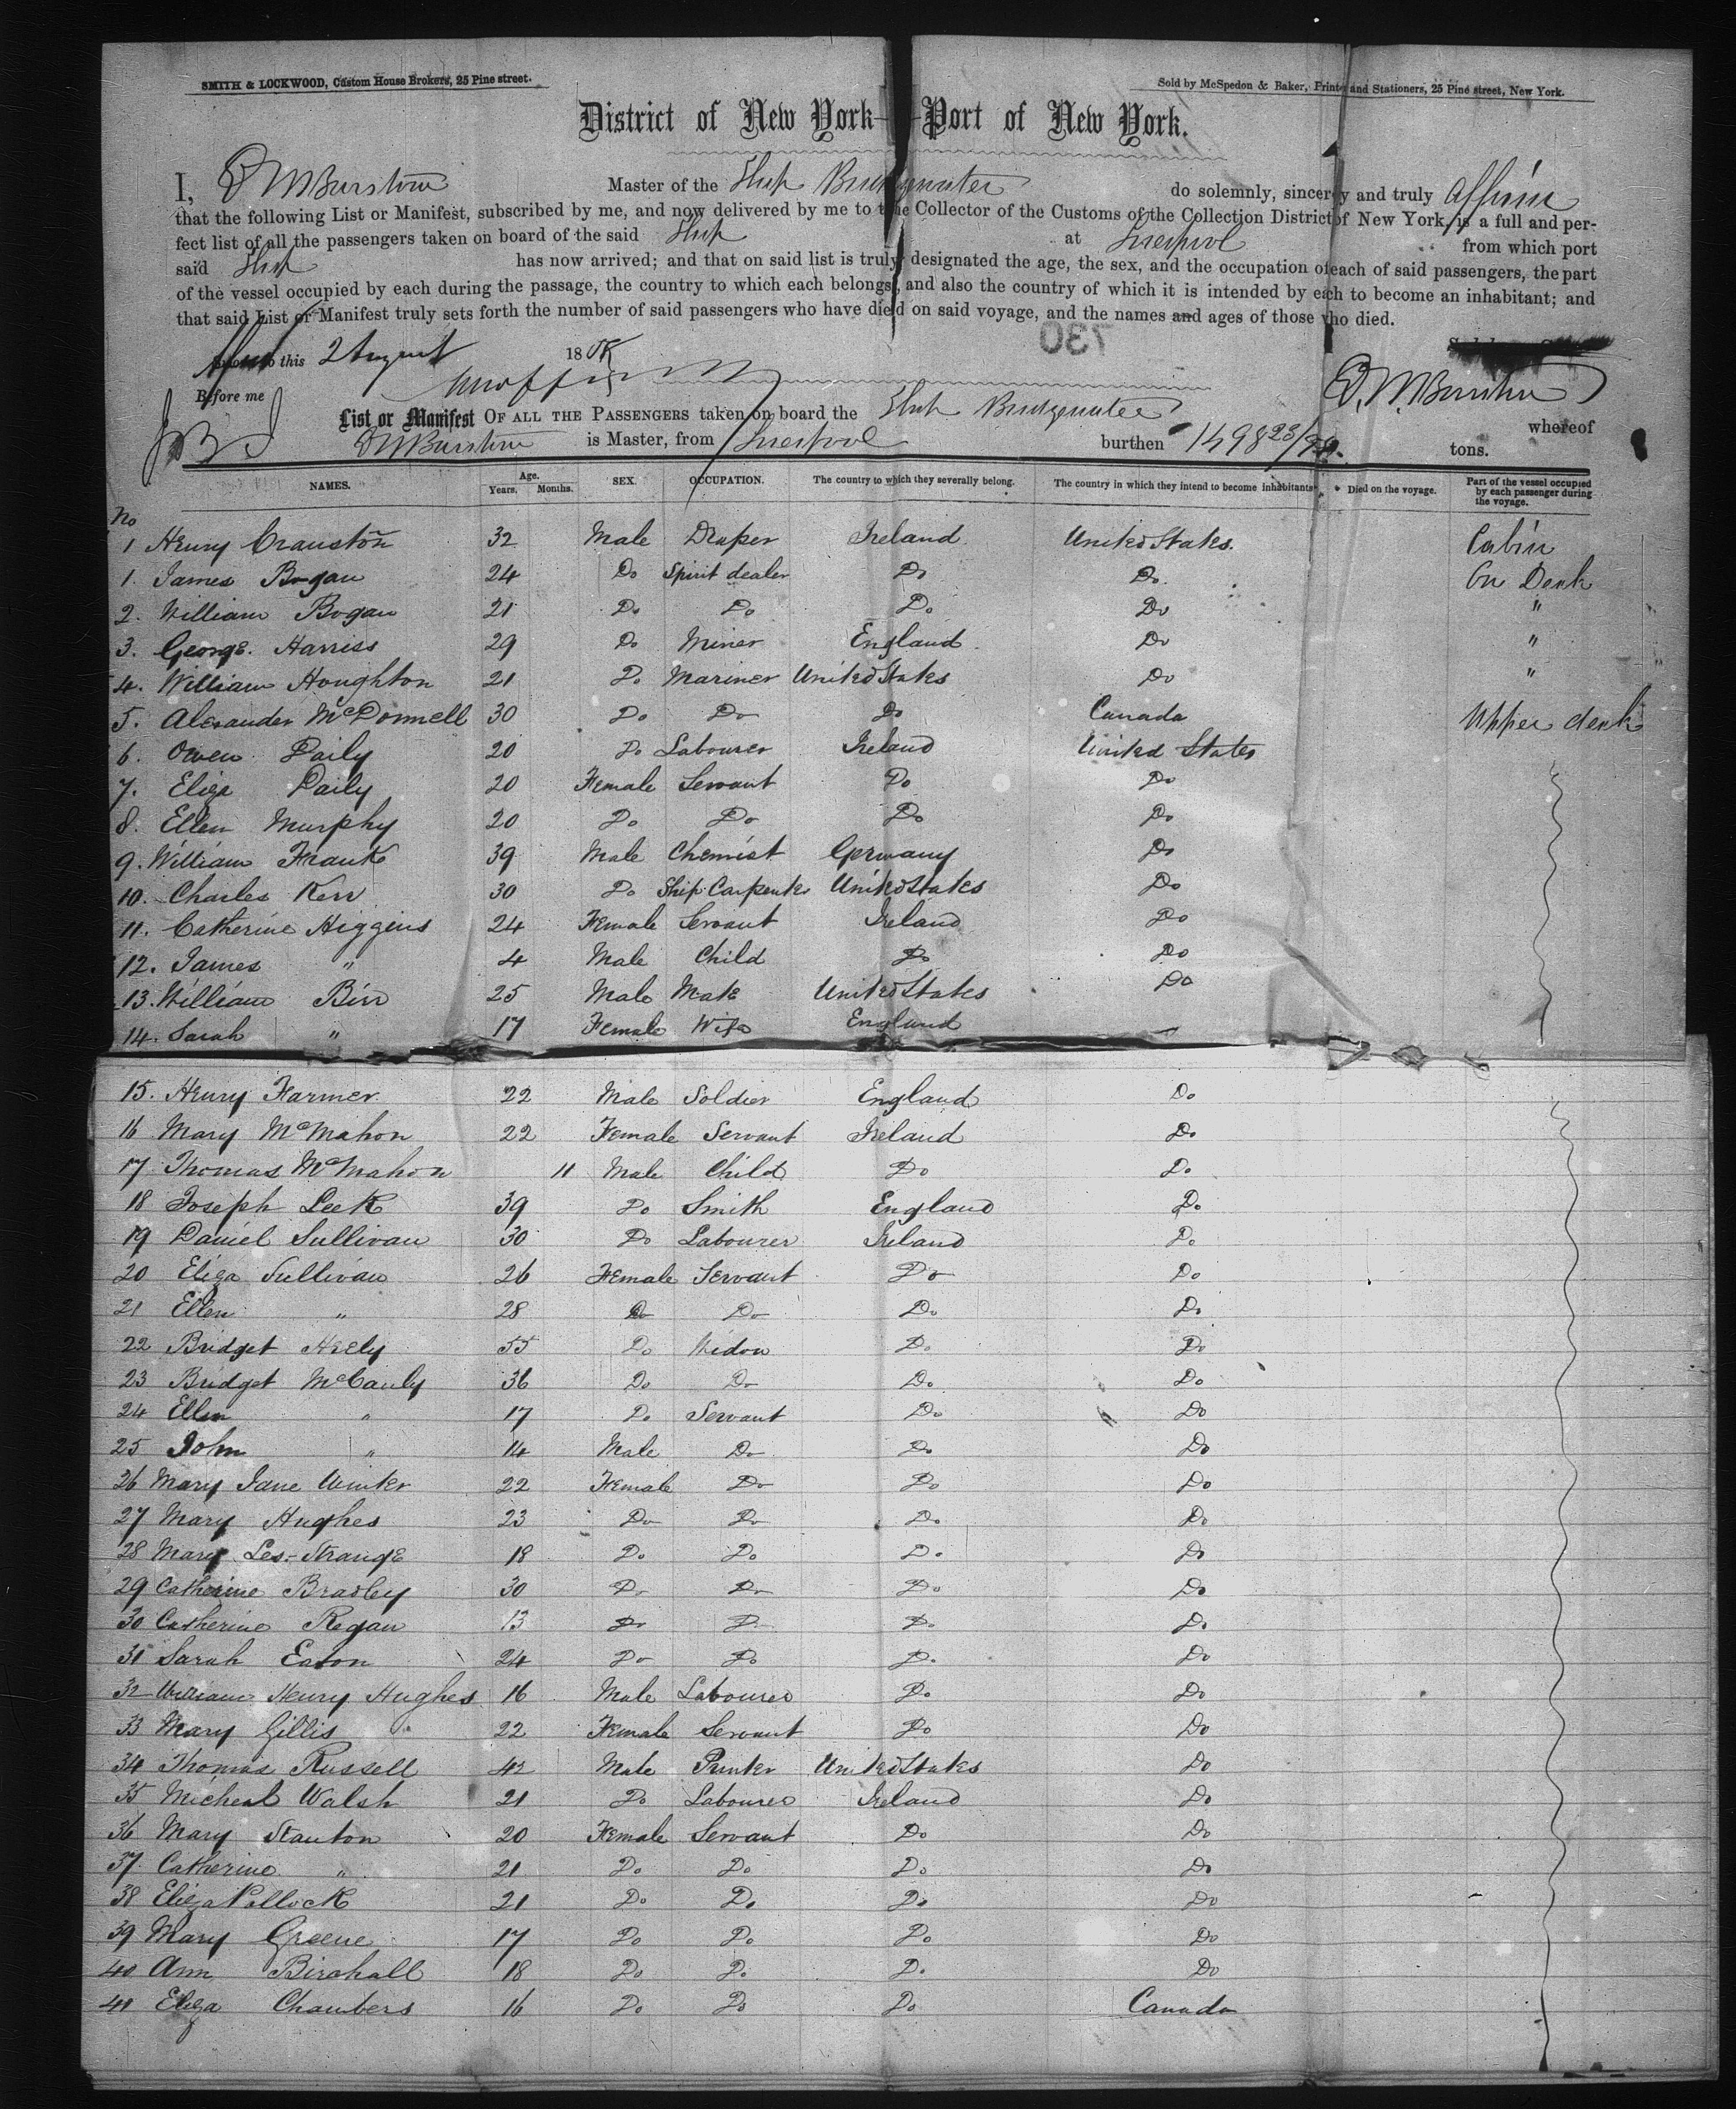 SMITH & LOCKWOOD, Custom House Brokers, 25 Pine street.
Sold by McSpedon & Baker, Printe and Stationers, 25 Pine street, New York.
District of New York - Port of New York.
I, Master of the Ship Bridgewater do solemnly, sincerely and truly Affirm
that the following List or Manifest, subscribed by me, and now delivered by me to the Collector of the Customs of the Collection District of New York, is a full and per-
fect list of all the passengers taken on board of the said Ship at Liverpool from which port
said Ship has now arrived; and that on said list is truly designated the age, the sex, and the occupation of each of said passengers, the part
of the vessel occupied by each during the passage, the country to which each belongs, and also the country of which it is intended by each to become an inhabitant; and
that said List or Manifest truly sets forth the number of said passengers who have died on said voyage, and the names and ages of those who died.
730
this 2 August 18
Before me
List or Manifest OF ALL THE PASSENGERS taken on board the Ship Bridgewater whereof
is Master, from Liverpool burthen 1498 tons.
NAMES. Age. Years. Months. SEX. OCCUPATION. The country to which they severally belong. The country in which they intend to become inhabitants. Died on the voyage. Part of the vessel occupied by each passenger during the voyage.
No
1 Henry Cranston 32 Male Draper Ireland United States. Cabin
1. James Bogan 24 Do Spirit dealer Do Do. On Deck
2. William Bogan 21 Do Do Do Do "
3. George. Harriss 29 Do Miner England Do "
4. William Houghton 21 Do Mariner United States Do "
5. Alexander McDonnell 30 Do Do Do Canada Upper deck
6. Owen Daily 20 Do Labourer Ireland United States
7. Eliza Daily 20 Female Servant Do Do
8. Ellen Murphy 20 Do Do Do Do
9. William Frank 39 Male Chemist Germany Do
10. Charles Kerr 30 Do Ship Carpenter United States Do
11. Catherine Higgins 24 Female Servant Ireland Do
12. James " 4 Male Child Do Do
13. William Birr 25 Male Mate United States Do
14. Sarah " 17 Female Wife England —
15. Henry Farmer 22 Male Soldier England Do
16 Mary McMahon 22 Female Servant Ireland Do
17 Thomas McMahon 11 Male Child Do Do
18 Joseph Leek 39 Do Smith England Do
19 Daniel Sullivan 30 Do Labourer Ireland Do
20 Eliza Sullivan 26 Female Servant Do Do
21 Ellen " 28 Do Do Do Do
22 Bridget Heely 55 Do Widow Do Do
23 Bridget McCauly 36 Do Do Do Do
24 Ellen " 17 Do Servant Do Do
25 John " 14 Male Do Do Do
26 Mary Jane Winter 22 Female Do Do Do
27 Mary Hughes 23 Do Do Do Do
28 Mary Les-Strange 18 Do Do Do Do
29 Catherine Bradley 30 Do Do Do Do
30 Catherine Regan 13 Do Do Do Do
31 Sarah Eaton 24 Do Do Do Do
32 William Henry Hughes 16 Male Labourer Do Do
33 Mary Gillis 22 Female Servant Do Do
34 Thomas Russell 42 Male Printer United States Do
35 Micheal Walsh 21 Do Labourer Ireland Do
36 Mary Stanton 20 Female Servant Do Do
37. Catherine " 21 Do Do Do Do
38 Eliza Pollock 21 Do Do Do Do
39 Mary Greene 17 Do Do Do Do
40 Ann Birchall 18 Do Do Do Do
41 Eliza Chambers 16 Do Do Do Canada